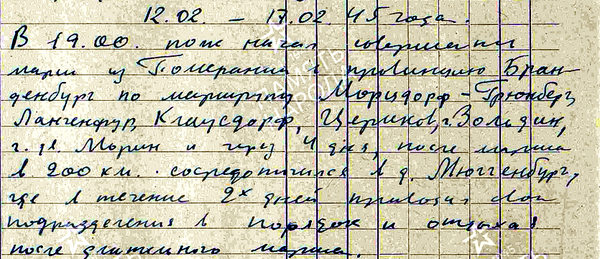 12.02. – 17.02.45 года.
В 19.00. полк начал совершать
марш из Померании в провинцию Бран-
денбург по маршруту Морцдорф – Грюнберг,
Лангенфур, Клаусдорф, Церников, г. Зольдин,
г. Морин и через 4 дня, после марша
в 200 км. сосредоточился в д. Мюггенбург,
где в течение 2х дней приводил свои
подразделения в порядок и отдыхал
после длительного марша.